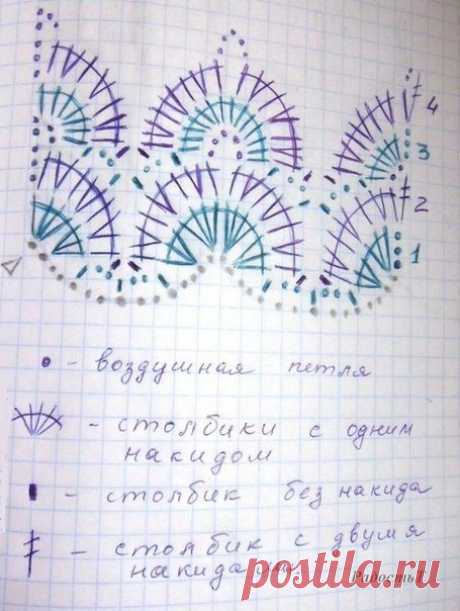 4
3
2
1
- воздушная петля
- столбики с одним
накидом
- столбик без накида
- столбик с двумя
накида
Радость
postila.ru